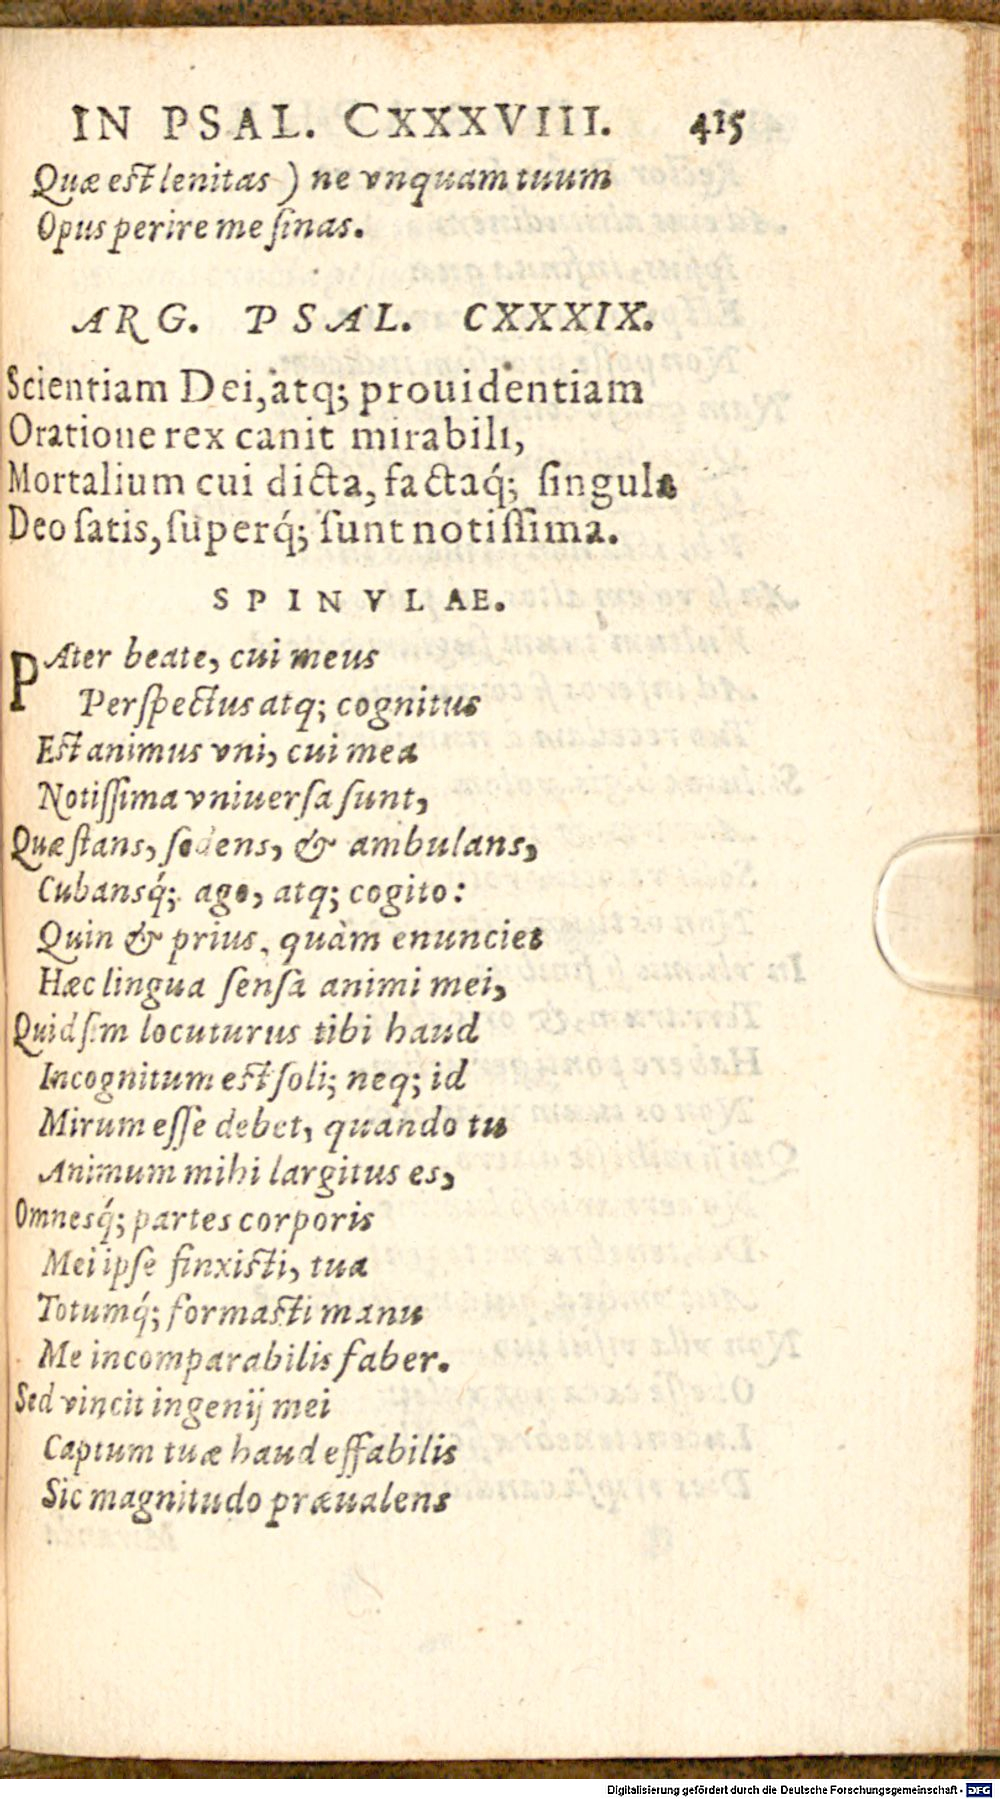 IN PSAL. CXXXVIII. 415
Quæ est lenitas) ne vnquam tuum
Opus perire me ſinas.
ARG. PSAL. CXXXIX.
Scientiam Dei, atq; prouidentiam
Oratione rex canit mirabili,
Mortalium cui dicta, factaq́; ſingula
Deo ſatis, ſuperq́; ſunt notiſſima.
SPINVLAE.
PAter beate, cui meus
Perſpectus atq; cognitus
Est animus vni, cui mea
Notiſſima vniuerſa ſunt,
Quæ ſtans, ſedens, & ambulans,
Cubansq́; ago, atq; cogito:
Quin & prius, quàm enunciet
Hæc lingua ſenſa animi mei,
Quid ſim locuturus tibi haud
Incognitum est ſoli; neq; id
Mirum eſſe debet, quando tu
Animum mihi largitus es,
Omnesq́; partes corporis
Mei ipſe finxisti, tua
Totumq́; formasti manu
Me incomparabilis faber.
Sed vincit ingenij mei
Captum tuæ haud effabilis
Sic magnitudo præualens
Digitalisierung gefördert durch die Deutsche Forschungsgemeinschaft - DFG